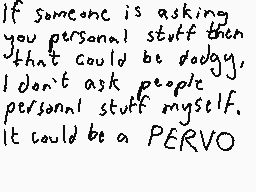 If someone is asking
you personal stuff then
that could be dodgy,
I don't ask people
personal stuff myself.
It could be a PERVO